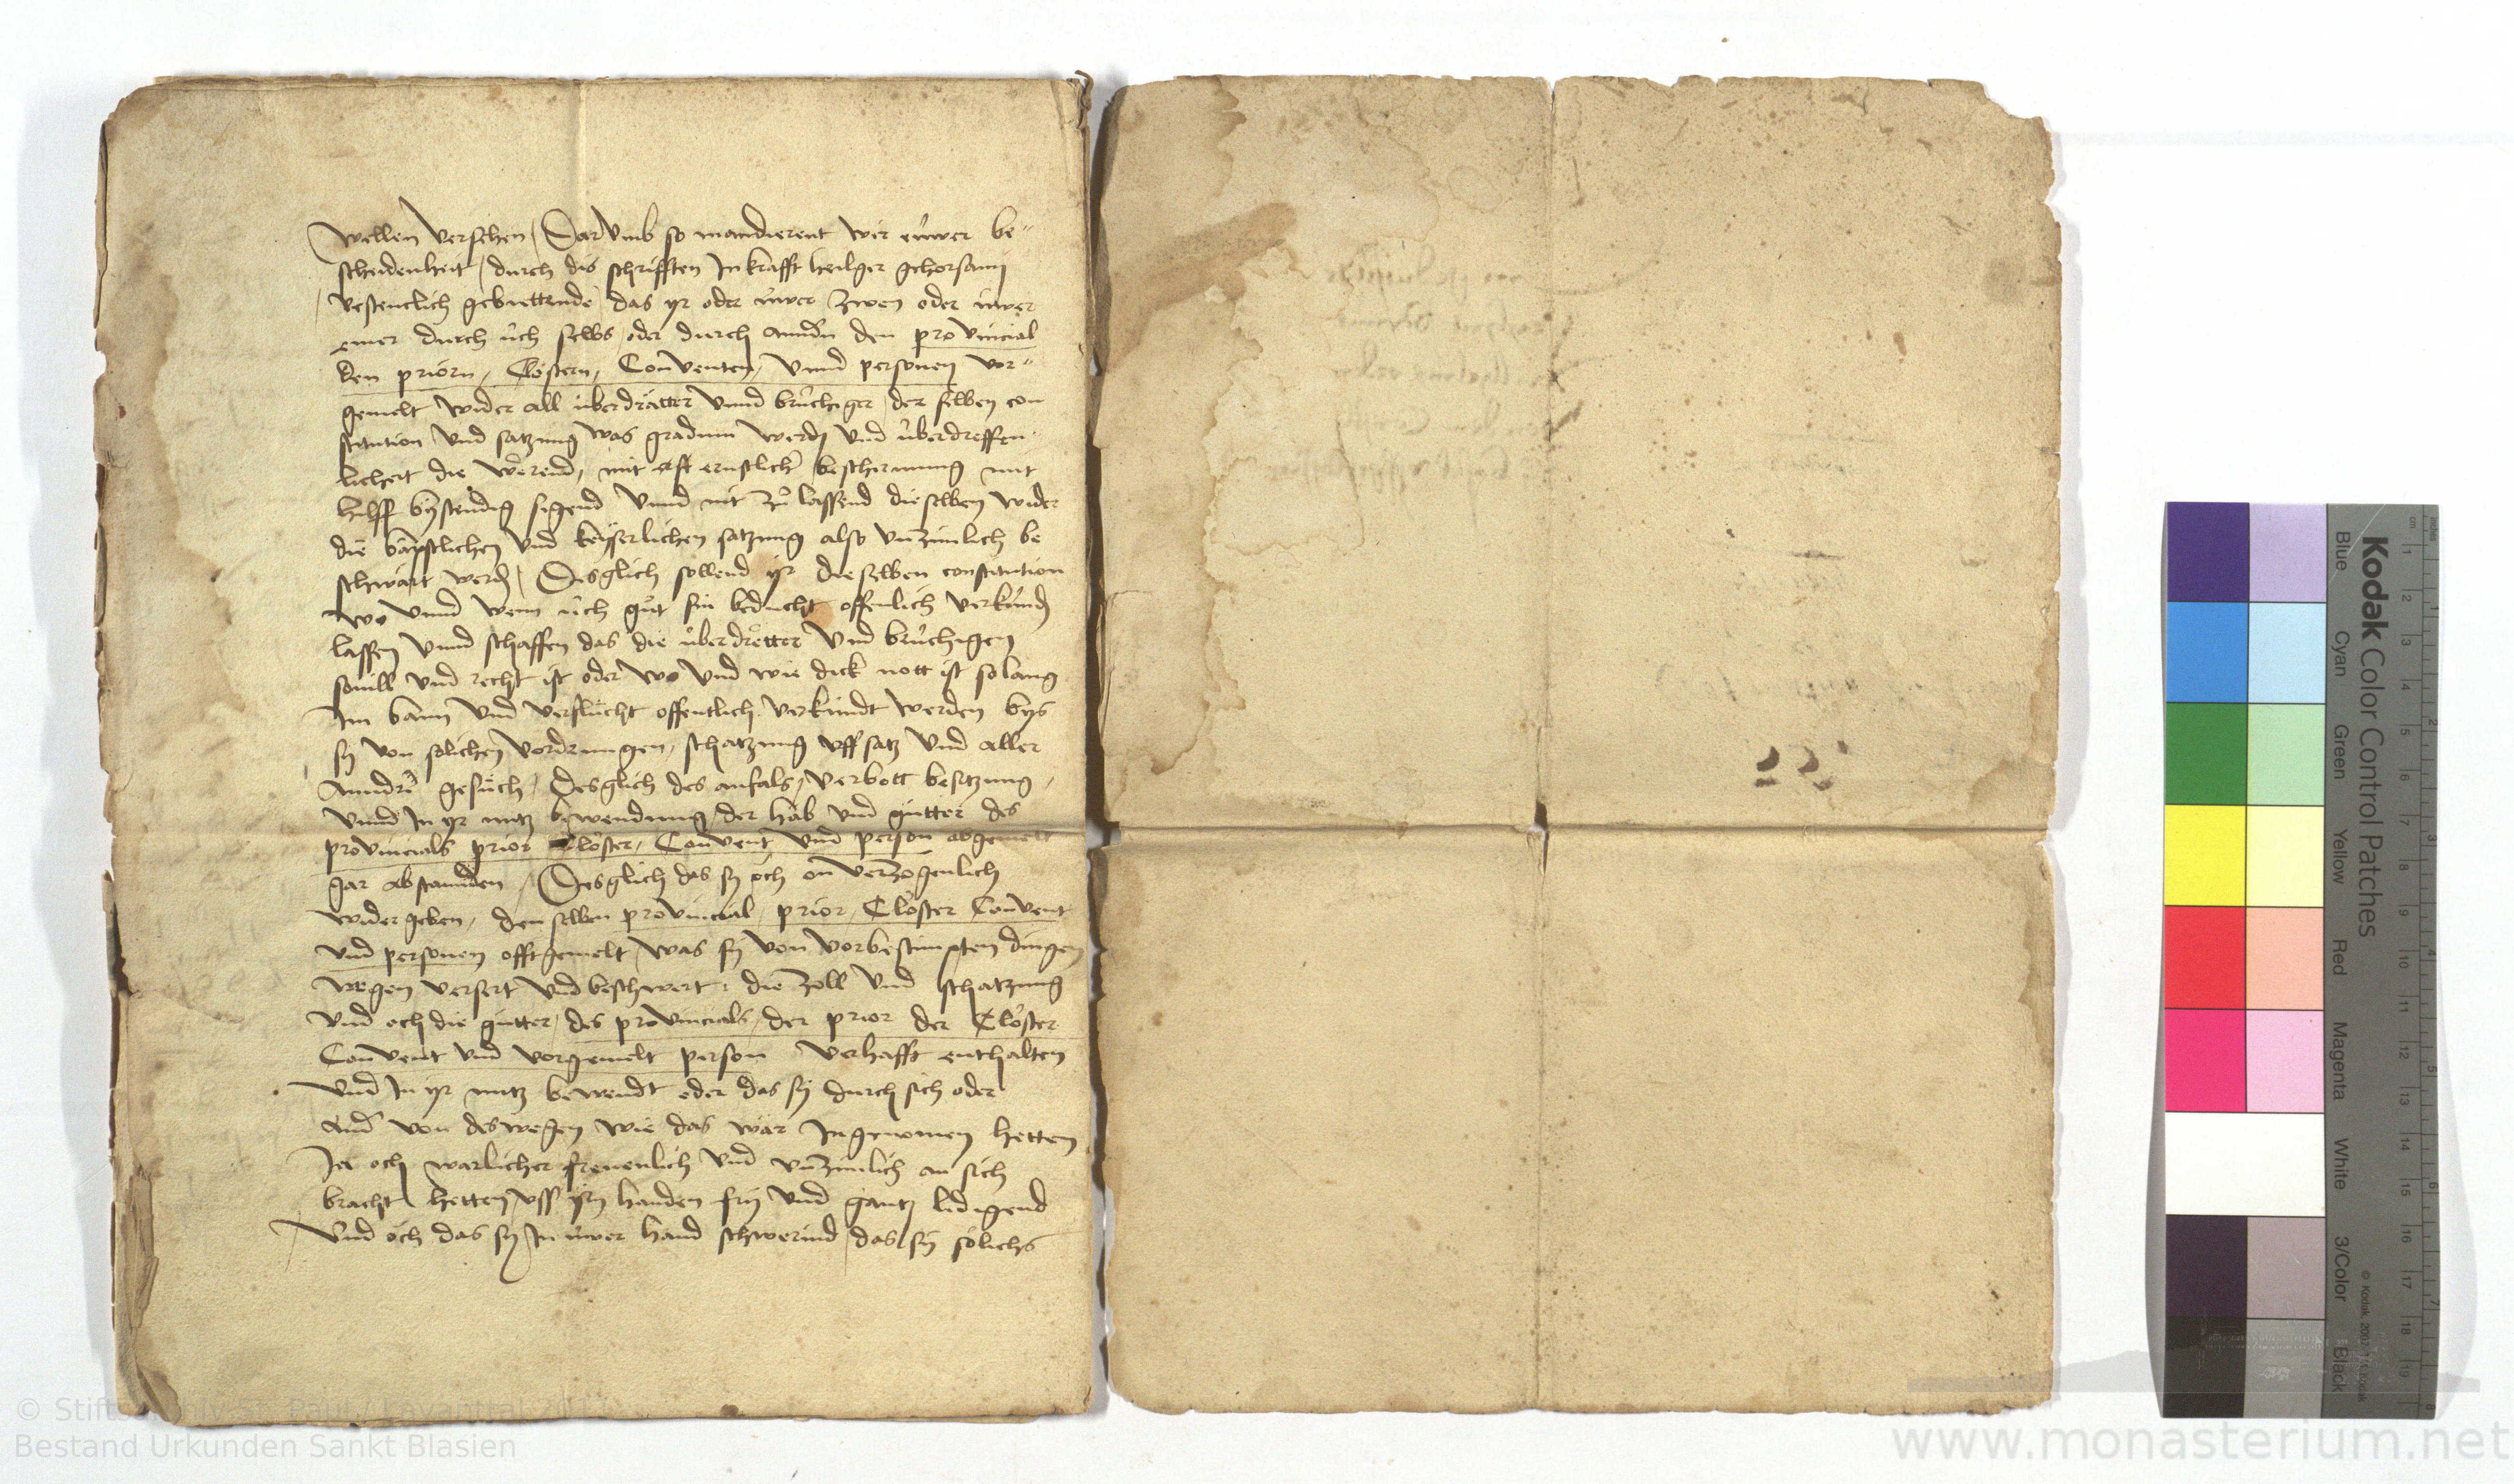 wellen versehen / Darumb so mandierent wir eüwer be-
scheidenheit / durch dis schrifften In krafft heilger gehorsami
vestenclich gebiettende das yr oder üwer zwen oder üwer
einer durch üch selbs oder durch anndrn den provincial
den priorn / Clöstern / Conventen / unnd personen vor-
gemelt wider all überdrätter unnd brüchiger der selben con
stitution und satzung was gradum werdn und überdreffen
licheit die werend / mit ernstlicher beschirmung mit
hilff bystendig sigend unnd nit zů lassend die selben wider
die bäpstlichen und keyserlichen satzung also unzimlich be
schwärt werdn / Desglich sollend yr die selben constitution
wo unnd wem üch gůt sin bedücht offenlich verkündn
lassen unnd schaffen das die überdretter und brüchigen
sovill und recht ist oder wo und wie dick nott ist so lang
Im bann und verflücht offentlich verkündt werden bys
sy von solichen vordrungen / schatzung uffsatz und aller
anndrer gesüch / Desglich des anfals / verbott besitzung /
unnd In yr nutz bewendung der hab und gütter des
provincials prior Clöster / Convent und person obgemelt
gar abstannden / Desglich das sy och on verzogenlich
wider geben / den selben provincial / prior / Clöster Convent
und personen offtgemelt was sy von vorbestimpten dingen
wegen versert und beschwert : die zoll und schatzung
und och die gütter / des provincials / der prior der Clöster
Convent und vorgemelt person verhafft enthalten
und In yr nutz bewendt oder das sy durch sich oder
ander von deswegen wie das wär Ingenomen hetten
Ja och warlicher frevenlich und unzimlich an sich
bracht hetten / uss yrn handen fry und gantz lidigend
Und och das sy In üwer hand schwerind / das sy sölichs
22
Kodak Color Control Patches
Blue Cyan Green Yellow Red Magenta White 3/Color Black
© Stiftsarchiv St. Paul / Lavanttal
Bestand Urkunden Sankt Blasien
www.monasterium.net